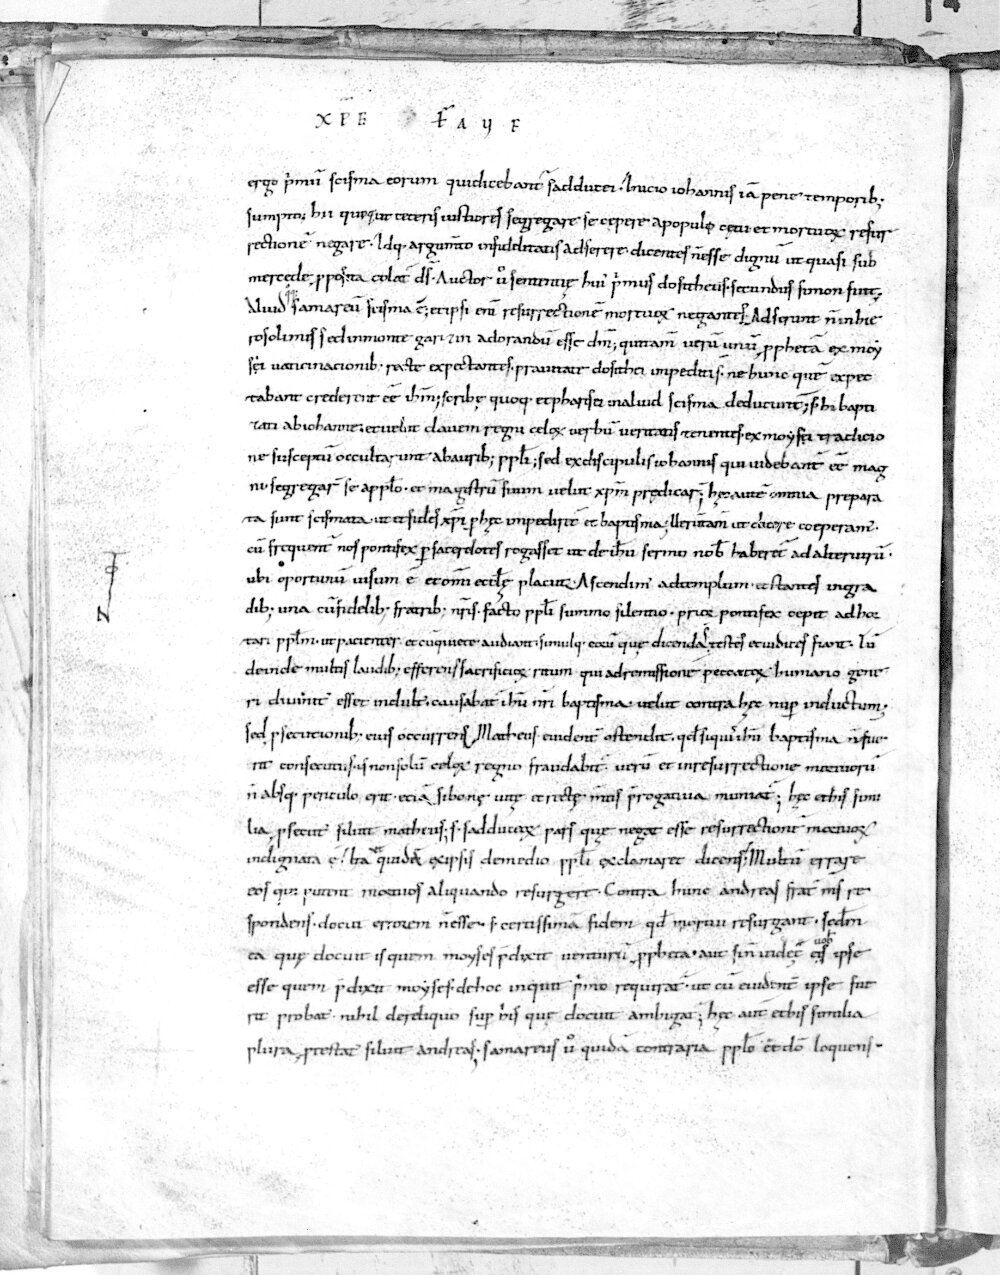 XPE FAUE
ergo p̄mū scisma eorum qui dicebant̄ sadducei. Inicio iohannis iā pene temporib;
sumpto; hii queque ut ceteris iustiores segregare se cepere a populo cepit et mortuoꝝ resur
rectionē negare. Idq; argumto infidelitatis adserere. dicentes n̄ esse dignū ut quasi sub
mercede, p̄posita colat̄ d̄s. Auctor ů sententię hui' p̄mus dositheus. secundus simon fuit;
Aliud samareū scisma ē; et ipsi eni resurrectionē mortuoꝝ negantes. Adserunt n̄ in hie
rosolimis sed in monte garizin adorandū esse dm̄; qui tam̄ uerū unū p̄phetā ex moy
sei uaticinacionib; recte expectantes. prauitate dosithei impediti s̄. ne hunc quē expec
tabant crederent eē ih̄m; scribę quoq; et pharisei in aliud scisma deducunt; s; hi bapti
zati ab iohanne. et uelut clauem regni celoꝝ uerbū ueritatis tenentes. ex moysei tradicio
ne susceptū occultarunt ab aurib; ppl̄i; sed ex discipulis iohannis qui uidebant̄ eē mag
ni. segregar̄ se a ppl̄o. et magistrū suum uelut xp̄m predicar̄; hęc autē omnia prepara
ta sunt scismata. ut et fides xp̄i p hęc impediret̄ et baptisma; Ueritam̄ ut dicere coeperam'
cū frequent̄ nos pontifex p̄ sacerdotes rogasset ut de ih̄u sermo nob̄ haberet̄ ad alterutrū.
ubi oportunū uisum ē et omī ecclę placuit. Ascendim' ad templum. et stantes in gra
dib; una cū fidelib; fratrib; nr̄is. facto ppl̄i summo silentio. prior pontifex cepit adhor
tari ppl̄m. ut pacienter et cū quiete audiant. simulq; eoꝝ que dicenda s̄ testes et iudices fiant. Tū
deinde multis laudib; efferens sacrificioꝝ ritum qui ad remissionē peccatoꝝ humano gene
ri diuinit' esset indult'. causabat̄ ih̄u nr̄i baptisma. uelut contra hęc nup̄ inductum;
sed p̄secutionib; eius occurrens Matheus. euident̄ ostendit. qd̄ siquis ih̄u baptisma n̄ fue
rit consecutus. is non solū celoꝝ regno fraudabit̄. uerū et in resurrectione mortuorū
n̄ absq; periculo erit. eciā si bonę uitę et rectę mtis p̄rogatiua muniat̄; hęc et his simi
lia, p̄secut' siluit matheus; s; sadduceoꝝ pars quę negat esse resurrectionē mortuoꝝ
indignata ē. Ita ut quidā ex ipsis de medio ppl̄i exclamaret dicens. Multū errare
eos qui putent mortuos aliquando resurgere. Contra hunc andreas frat̄ m̄s re
spondens. docuit errorem n̄ esse. s; certissimā fidem. qd̄ mortui resurgant. sed̄m
ea quę docuit is quem moyses p̄dixit uenturū p̄pheta. aut si n̄ uidet̄ uob̄ eis ipse
esse quem p̄dixit moyses. de hoc inquit p̄mo requirat̄. ut cū euident̄ ipse fue
rit probat'. nihil dereliquo sup̄ his quę docuit ambigat̄; hęc aut̄ et his similia
plura, p̄testat' siluit andreas; samareus ů quidā contraria ppl̄o et dō loquens.